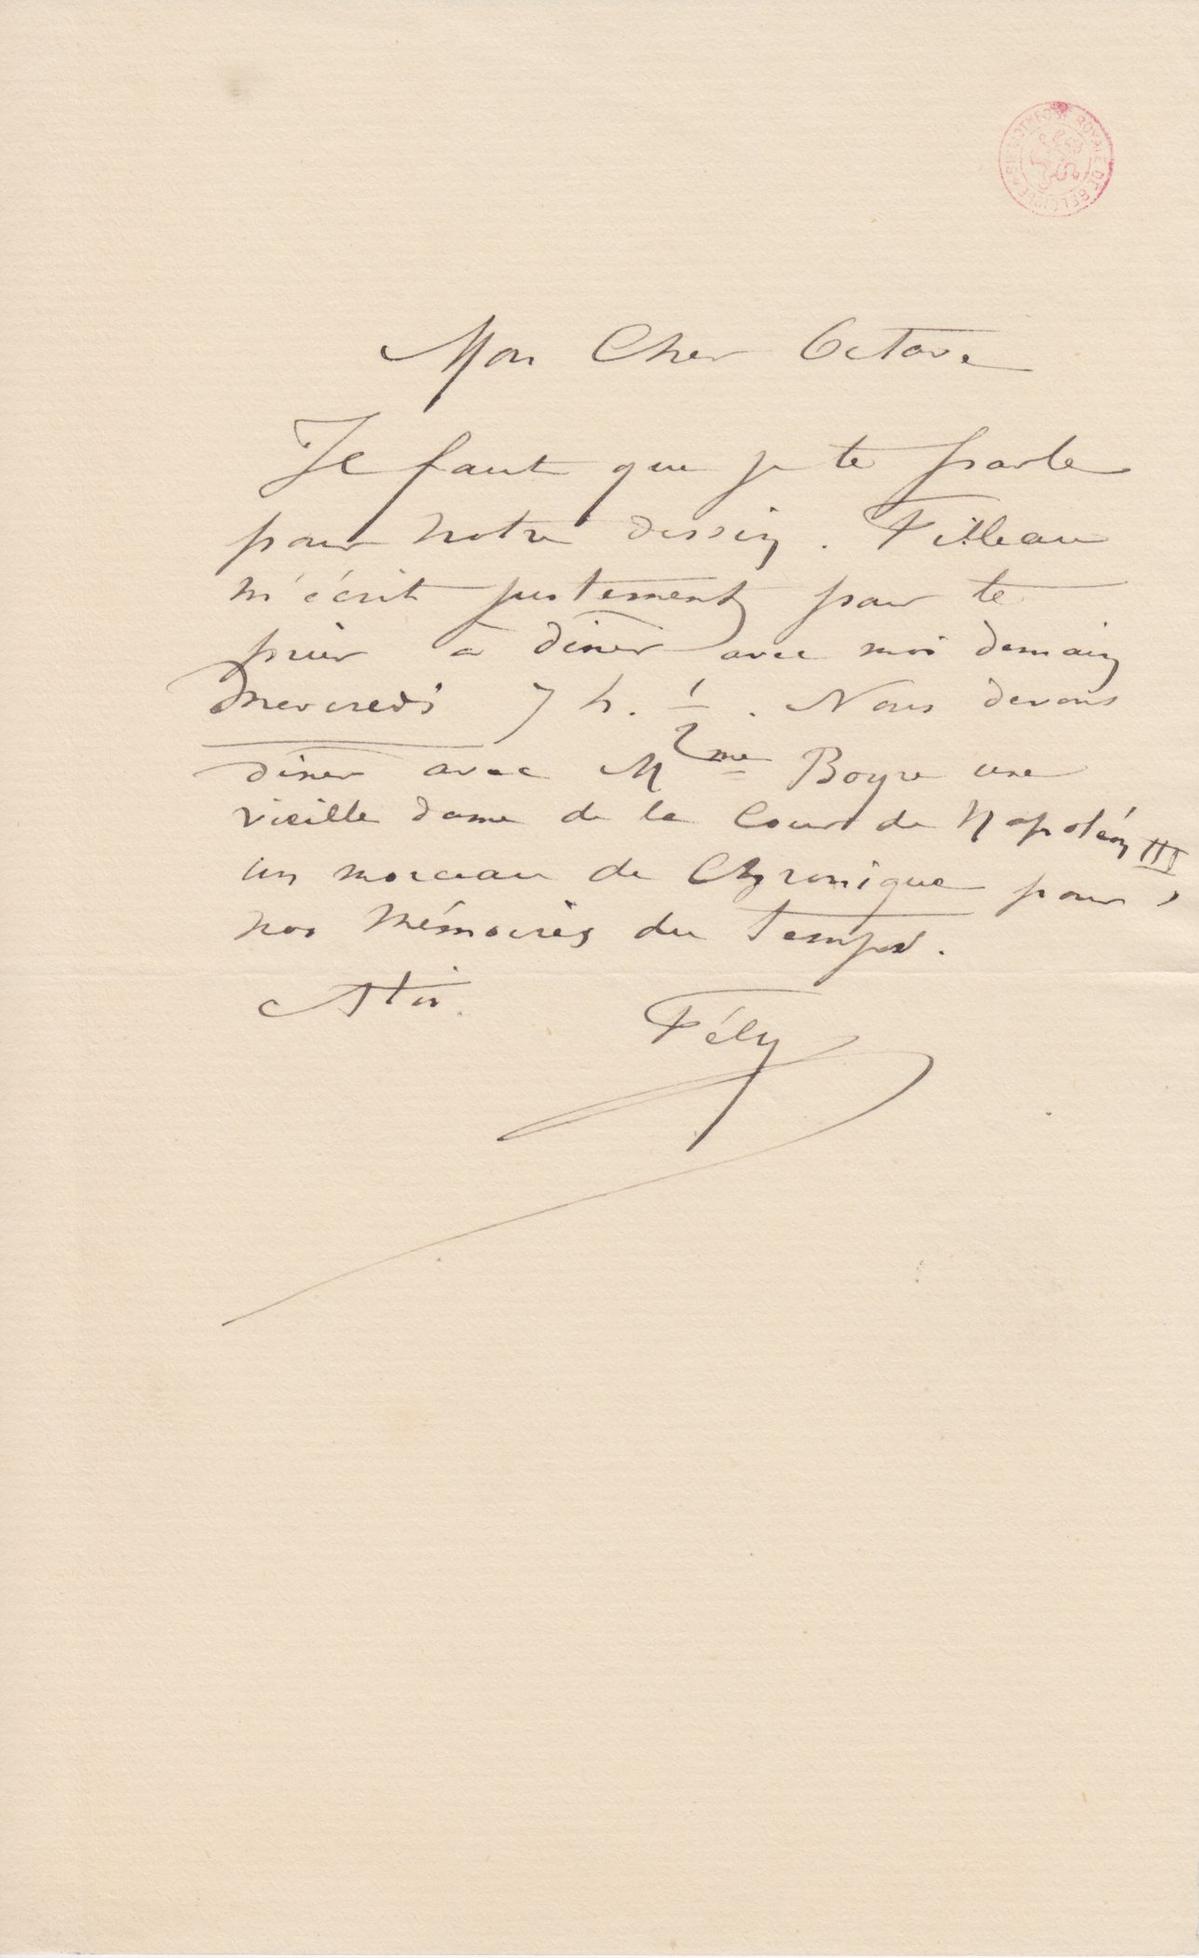 BIBLIOTHÈQUE ROYALE DE BELGIQUE
Mon Cher Octave
Il faut que je te parle
pour notre dessin. Filleau
m'écrit justement pour te
prier à dîner avec moi demain
mercredi 7 h. 1/2. Nous devons
diner avec Mme Boyre une
vieille dame de la Cour de Napoléon III,
un morceau de Chronique pour
nos Mémoires du Temps.
à toi.
Fély